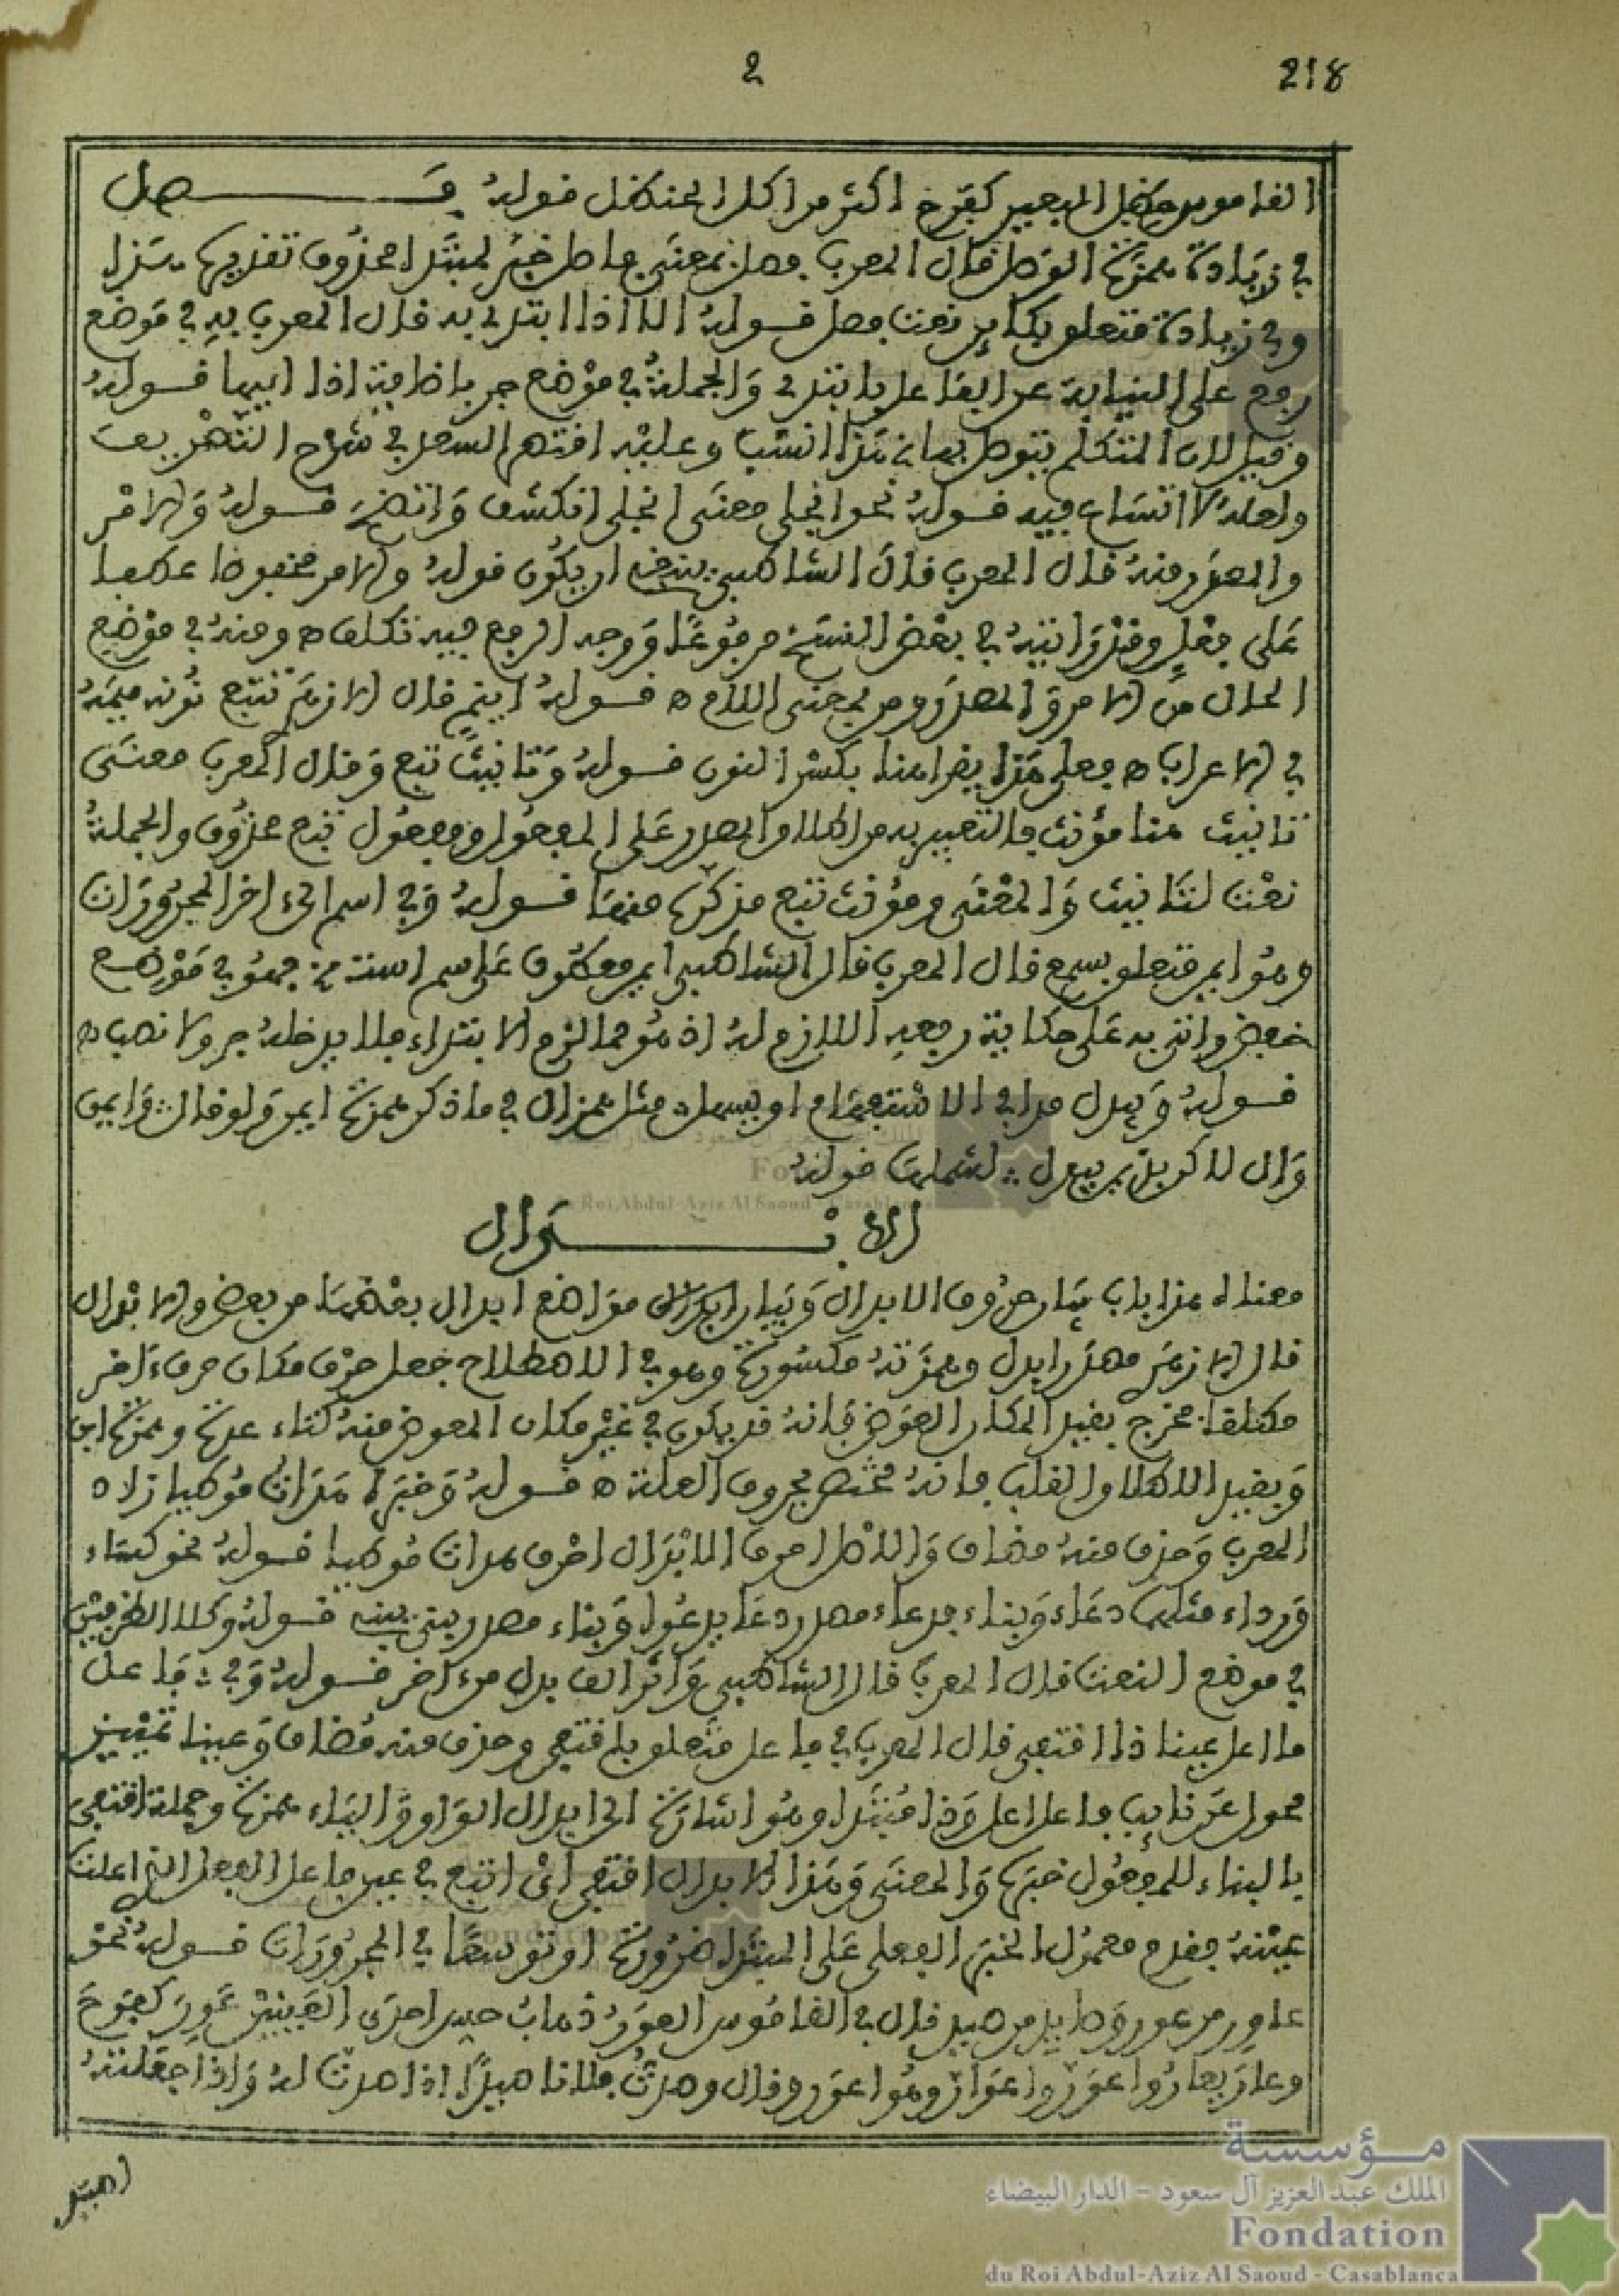 2 218
القاموس حظل البعير كفرح اكثر من اكل الحنظل قوله فـــصل
في زيادة همزة الوصل قال المعرب فصل بمعنى فاصل خبر لمبتدإ محذوف تقديره هذا
وفي زيادة متعلق بكائن نعت فصل قوله الا اذا ابتدي به قال المعرب به في موضع
رفع على النيابة عن الفاعل بابتدي والجملة في موضع جر باضافة اذا اليها قوله
وقيل لان المتكلم يتوصل بها هذا انسب وعليه اقتصر السعد في شرح التصريف
ولعله لا اتساع فيه قوله نحو انجلى معنى انجلى انكشف واتضح قوله والامر
والمصدر منه قال المعرب قال الشاطبي ينبغي ان يكون قوله والامر مخفوضا عطفا
على فعل وقد رايته في بعض النسخ مرفوعا ووجه الرفع فيه تكلف ه ومنه في موضع
الحال من الامر والمصدر ومن بمعنى اللام ه قوله ايتم قال الازهري تتبع نونه ميمه
في الاعراب ه فعلى هذا يقرا هنا بكسر النون قوله وتانيث تبع وقال المعرب معنى
تانيث هنا مؤنث فالتعبير به من اطلاق المصدر على المفعول ومفعول تبع محذوف والجملة
نعت لتانيث والمعنى ومؤنث تبع مذكره منها قوله وفي اسم الى اخر المجرورات
وهو ايمن متعلق بسمع قال المعرب قال الشاطبي ايمن معطوف على اسم است فهو في موضع
خفض واتى به على حكاية رفعه اللازم له اذ هو مما لزم الابتداء فلا يدخله جر ولا نصب ه
قوله ويبدل مدا في الاستفهام او يسهل مثل همز ال في ما ذكر همزة ايمن ولو قال وايمن
وال لذاكر بل يبدل لشملها قوله
الابـــدال
معناه هذا باب بيان حروف الابدال وبيان مواضع ابدال بعضها من بعض والابدال
قال الازهري مصدر ابدل وهمزته مكسورة وهو في الاصطلاح جعل حرف مكان حرف ءاخر
مطلقا فخرج بقيد المكان العوض فانه قد يكون في غير مكان المعوض منه كتاء عدة وهمزة ابن
وبقيد الاطلاق القلب فانه مختص بحروف العلة ه قوله وخبره هدات موطيا زاد
المعرب وحذف منه مضاف والاصل احرف الابدال احرف هدات موطيا قوله نحو كساء
ورداء مثلها دعاء وبناء فدعاء مصدر دعا يدعو وبناء مصدر بنى يبني قوله وكلا الطرفين
في موضع النعت قال المعرب قال الشاطبي واثر الف بدل من ءاخر قوله وفي فاعل
ما اعل عينا ذا اقتفي قال المعرب في فاعل متعلق باقتفي وحذف منه مضاف وعينا تمييز
محول عن نايب فاعل اعل وذا مبتدا وهو اشارة الى ابدال الواو والياء همزة وجملة اقتفي
بالبناء للمفعول خبره والمعنى وهذا الابدال اقتفي اي اتبع في عين فاعل الفعل الذي اعلت
عينه فقدم معمول الخبر الفعلي على المبتدا ضرورة او توسعا في المجرورات قوله نحو
عاور من عور وصايد من صيد قال في القاموس العور ذهاب حس احدى العينين عور كفرح
وعار يعار واعور واعوار وهو اعور وقال وصدت فلانا صيدا اذا صدت له واذا جعلته
اصيد
مؤسسة
الملك عبد العزيز آل سعود - الدار البيضاء
Fondation
du Roi Abdul-Aziz Al Saoud - Casablanca